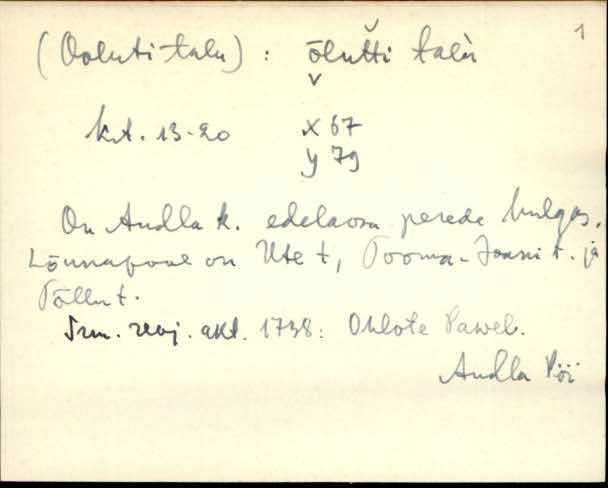 1
(Ooluti-talu) : ōlut̆ti talù
krt. 13-20 x 67
y 79
On Audla k. edelaosa perede hulgas.
Lõunapool on Ute t, Tooma-Jaani t. ja
Põllu t.
Srm. revj. akt. 1738: Ohlote Pawel.
Audla Pöi